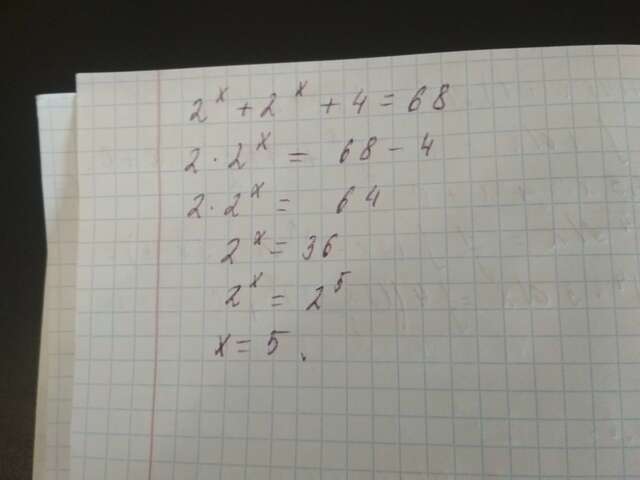 2^x + 2^x + 4 = 68
2 · 2^x = 68 - 4
2 · 2^x = 64
2^x = 36
2^x = 2^5
x = 5.